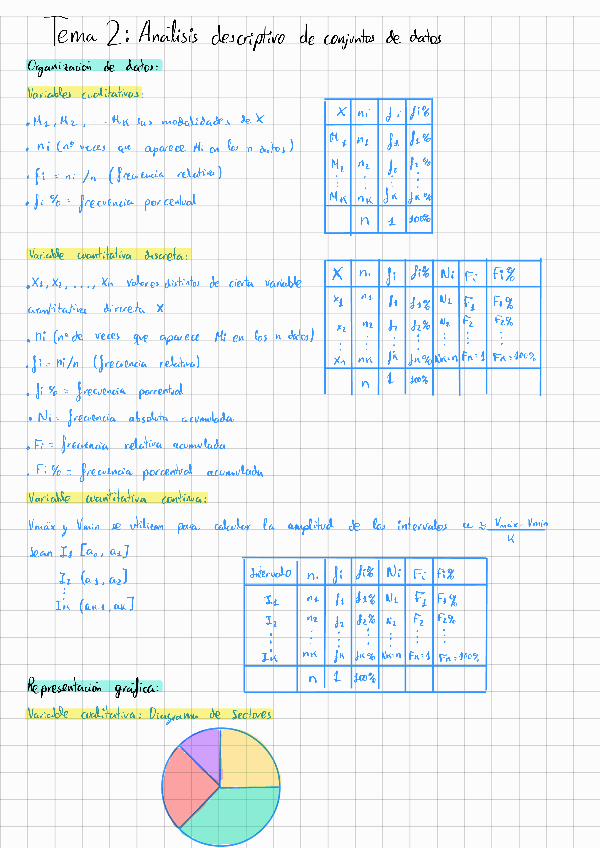 Tema 2: Análisis descriptivo de conjuntos de datos
Organización de datos:
Variables cualitativas:
• M1, M2, ... MK sus modalidades de X
• ni (nº veces que aparece Mi en los n datos)
• fi = ni/n (frecuencia relativa)
• fi% = frecuencia porcentual
X ni fi fi%
M1 n1 f1 f1%
M2 n2 f2 f2%
⋮ ⋮ ⋮ ⋮
MK nK fK fK%
n 1 100%
Variable cuantitativa discreta:
• X1, X2, ..., Xn valores distintos de cierta variable
cuantitativa discreta X
• ni (nº de veces que aparece Mi en los n datos)
• fi = ni/n (frecuencia relativa)
• fi% = frecuencia porcentual
• Ni = frecuencia absoluta acumulada
• Fi = frecuencia relativa acumulada
• Fi% = frecuencia porcentual acumulada
X ni fi fi% Ni Fi Fi%
X1 n1 f1 f1% N1 F1 F1%
X2 n2 f2 f2% N2 F2 F2%
⋮ ⋮ ⋮ ⋮ ⋮ ⋮ ⋮
Xn nK fK fK% NK=n FK=1 FK=100%
n 1 100%
Variable cuantitativa continua:
Vmáx y Vmin se utilizan para calcular la amplitud de los intervalos a ≈ Vmáx - Vmin
K
sean I1 [a0, a1]
I2 (a1, a2]
⋮
IK (aK-1, aK]
Intervalo ni fi fi% Ni Fi Fi%
I1 n1 f1 f1% N1 F1 F1%
I2 n2 f2 f2% N2 F2 F2%
⋮ ⋮ ⋮ ⋮ ⋮ ⋮ ⋮
IK nK fK fK% NK=n FK=1 FK=100%
n 1 100%
Representación gráfica:
Variable cualitativa: Diagrama de Sectores